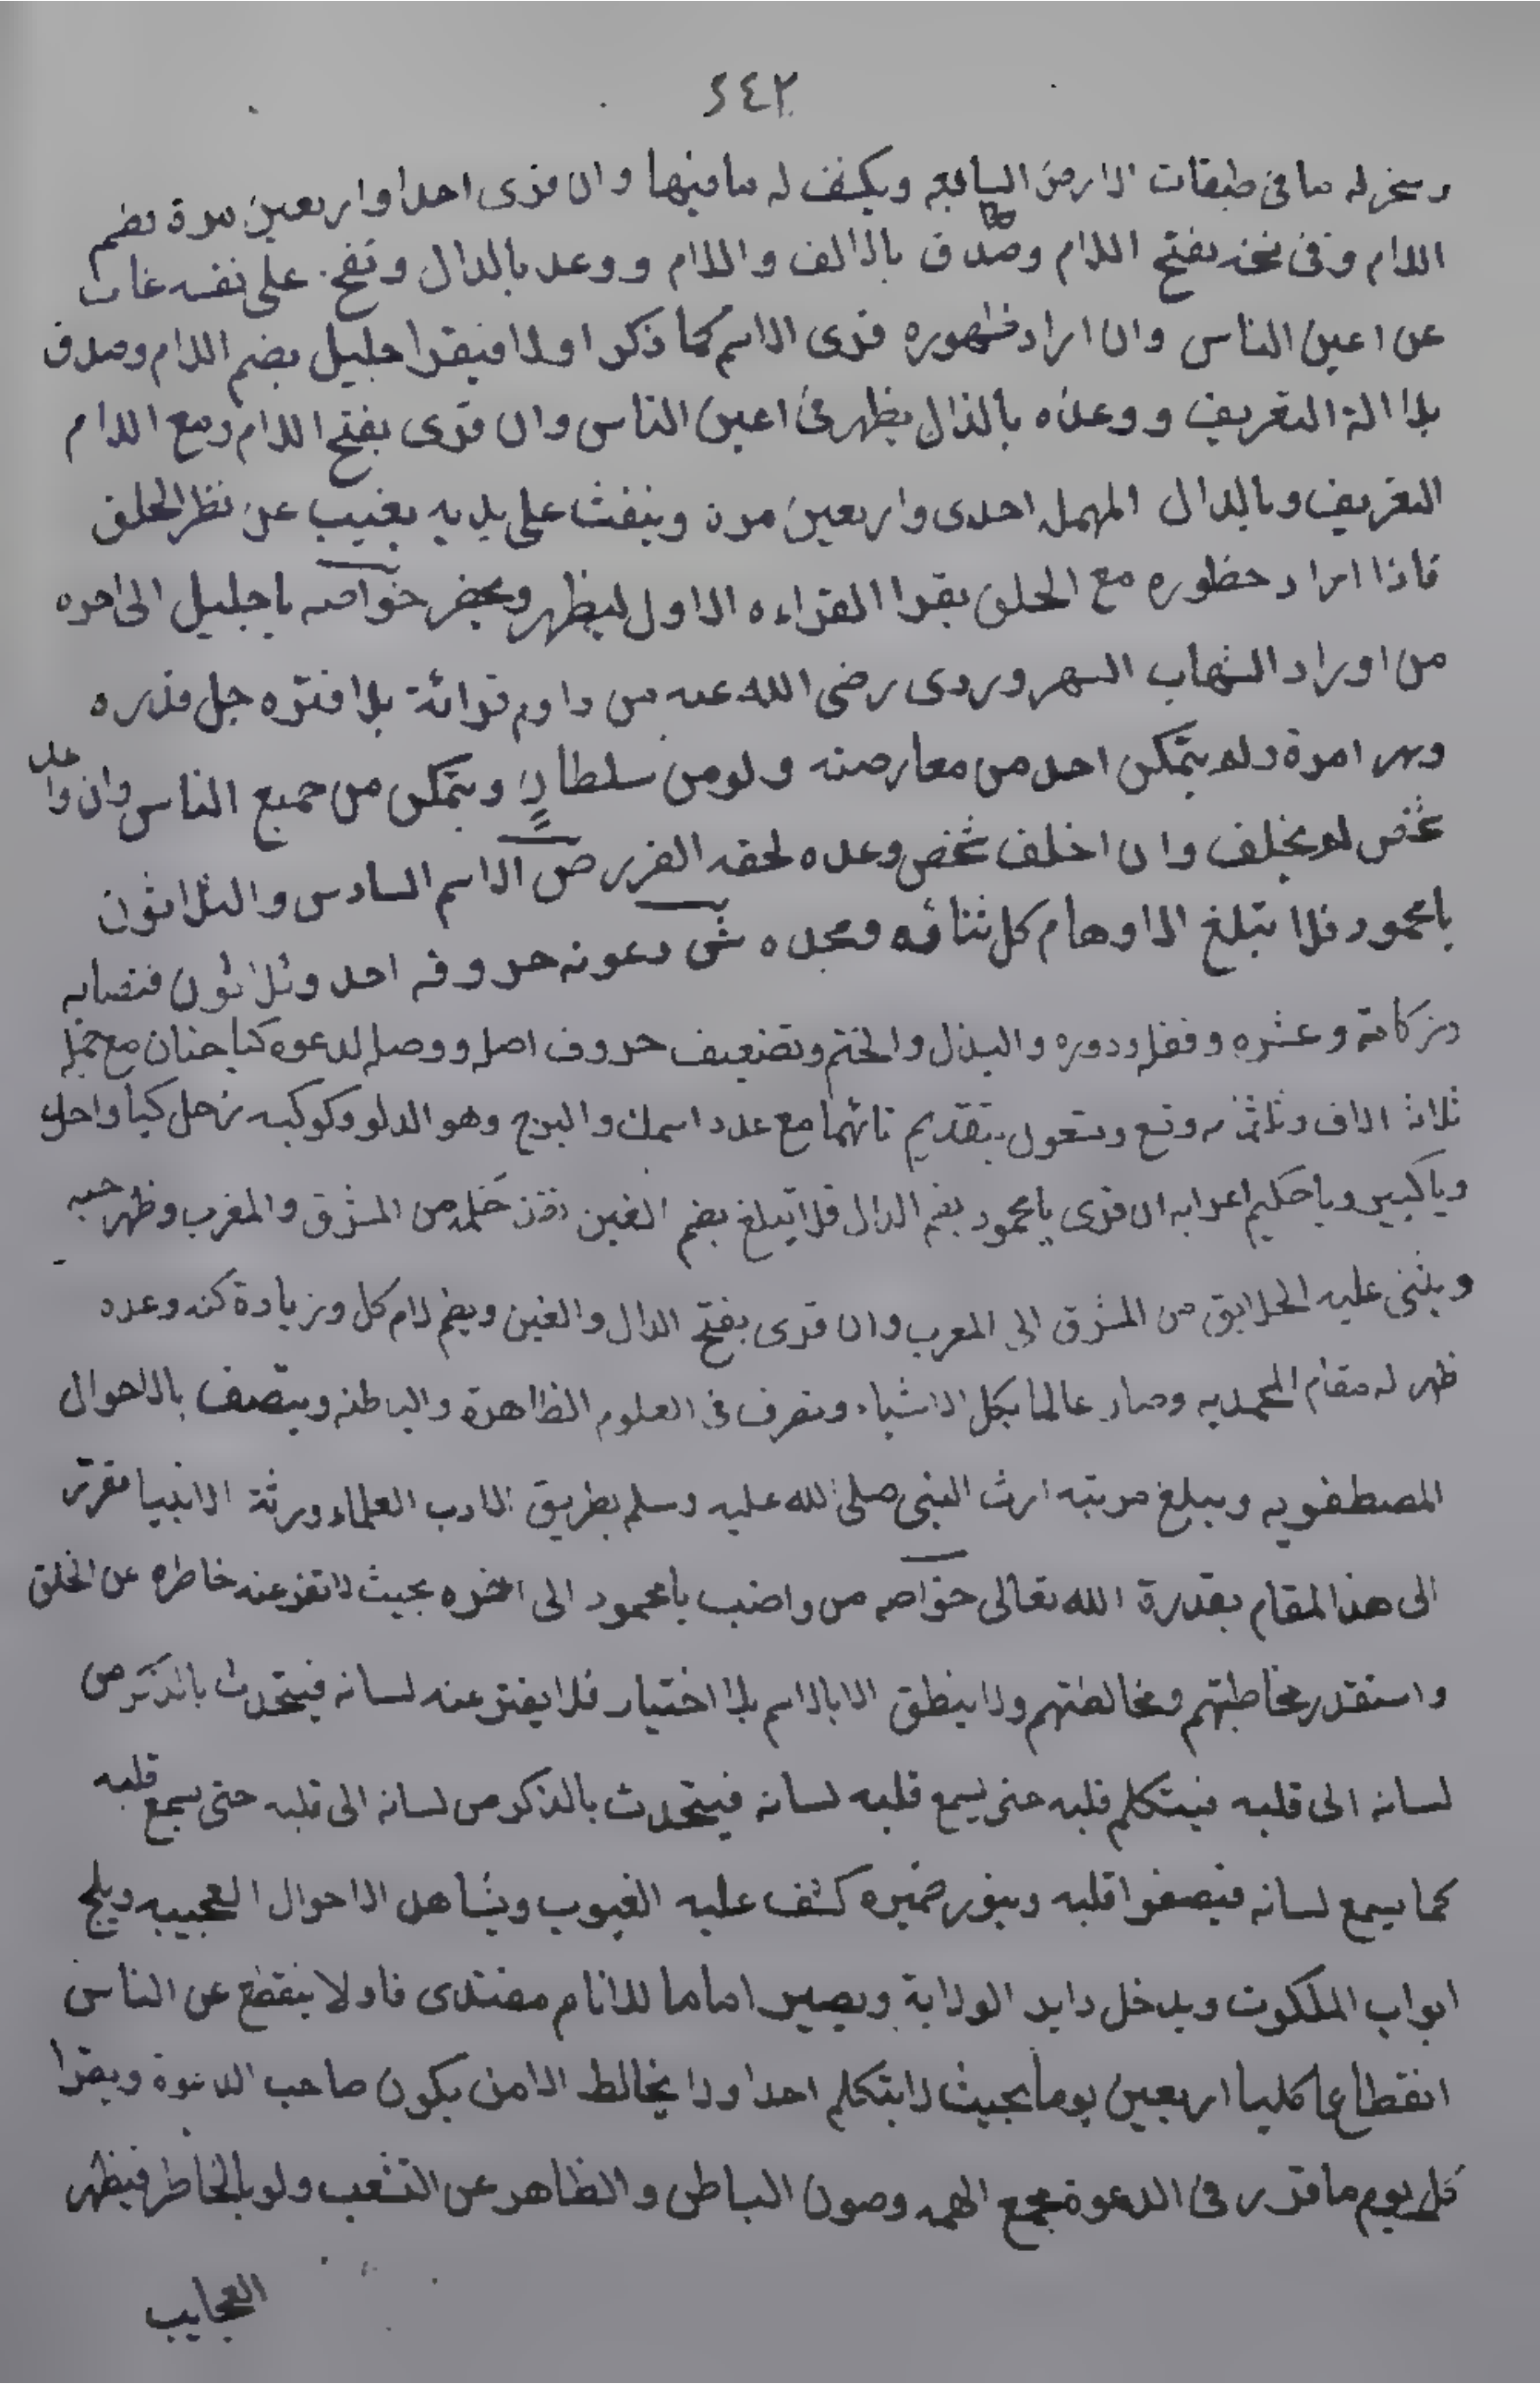 ٢٤٢
وسخر له ما فى طبقات الارض السابعه ويكيف له ما فيها وان قرى احدا واربعين مرة بضم
اللام وفى نسخه بفتح اللام وصدق بالالف واللام ووعد بالدال ونفخ على نفسه غاب
عن اعين الناس وان اراد ظهوره قرى الاسم كما ذكر اولا فيقرا جليل بضم اللام وصدق
بلا الة التعريف ووعده بالذال يظهر فى اعين الناس وان قرى بفتح اللام ومع اللام
التعريف وبالدال المهمله احدى واربعين مرة وينفث على يديه يغيب عن نظر الخلق
فاذا اراد حظوره مع الخلق يقرا القراءه الاول ليظهر ويحضر خواصه يا جليل الى اخره
من اوراد الشهاب السهروردى رضى الله عنه من داوم قرائة بلا فتره جل قدره
وبهر امرة ولا يتمكن احد من معارضته ولو من سلطان ويتمكن من جميع الناس وان واعد
شخص لا يخلف وان اخلف شخص وعده لحقه الضرر ص الاسم السادس والثلاثون
يا محمود فلا تبلغ الاوهام كل ثنائه ومجده ش دعوته حروفه احد وثلاثون فنصابه
وزكاته وعشره وقفله ودوره والبذل والختم وتضعيف حروف اصله ووصله لدعوه كيا حنان مع
ثلاثة الاف وثلاثمه وتسع وتسعون بتقديم تائهما مع عدد اسمك والبرج وهو الدلو وكوكبه زحل كيا واحد
ويا كبير ويا حكيم اعرابه ان قرى يا محمود بضم الدال فلا تبلغ بضم الغين نفذ حكمه من المشرق والمغرب وظهر حبه
ويثنى عليه الخلايق من المشرق الى المغرب وان قرى بفتح الدال والغين وبضم لام كل وزيادة كنه وعده
ظهر له مقام المحمديه وصار عالما بكل الاشياء وتصرف فى العلوم الظاهرة والباطنه ويتصف بالاحوال
المصطفويه ويبلغ مرتبه ارث النبى صلى الله عليه وسلم بطريق الادب العلماء ورثة الانبيا
الى هذا المقام بقدرة الله تعالى خواصه من واضب يا محمود الى اخره بحيث لا تفر عنه خاطره عن الخلق
واستقدر مخاطبتهم ومخالطتهم ولا ينطق الا بالاسم بلا اختيار فلا يفتر عنه لسانه فيتحدث بالذكر من
لسانه الى قلبه فيتكلم قلبه حتى يسمع قلبه لسانه فيتحدث بالذكر من لسانه الى قلبه حتى يسمع قلبه
كما يسمع لسانه فيصفوا قلبه وينور ضميره كشف عليه الغيوب ويشاهد الاحوال العجيبه ويلج
ابواب الملكوت ويدخل دايرة الولاية ويصير اماما للانام مقتدى فاولا ينقطع عن الناس
انقطاعا كليا اربعين يوما بحيث لا يتكلم احدا ولا يخالط الا من يكون صاحب الدعوة ويقرا
كل يوم ما قدر فى الدعوة بجمع الهمه وصون الباطن والظاهر عن التشعب ولو بالخاطر فيظهر
العجايب